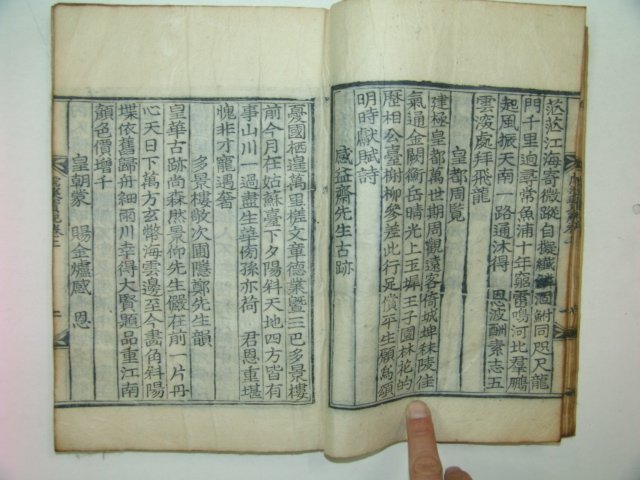 茫茫江海寄微蹤自擬纖鱗涸鮒同咫尺龍
門千里逈尋常魚浦十年窮雷鳴河北羣鵬
起風振天南一路通沐得 恩波酬素志五
雲深處拜飛龍
皇都周覧
建極皇都萬世期周觀遠客倚城埤秣陵佳
氣通金闕衡岳晴光上玉墀王子園林花的
歷相公臺榭柳參差此行足償平生願爲頌
明時獻賦詩
感益齋先生古跡
憂國栖遑萬里槎文章德業曁三巴多景樓
前今月在姑蘇臺下夕陽斜天地四方皆有
事山川一過盡生華傍孫亦荷 君恩重堪
愧非才寵遇奢
多景樓敬次圃隱鄭先生韻
皇華古跡尚森然景仰先生儼在前一片丹
心天日下萬方玄幣海雲邊至今畵角斜陽
堞依舊歸舟細雨川幸得大賢題品重江南
顔色價增千
皇朝蒙 賜金爐感 恩